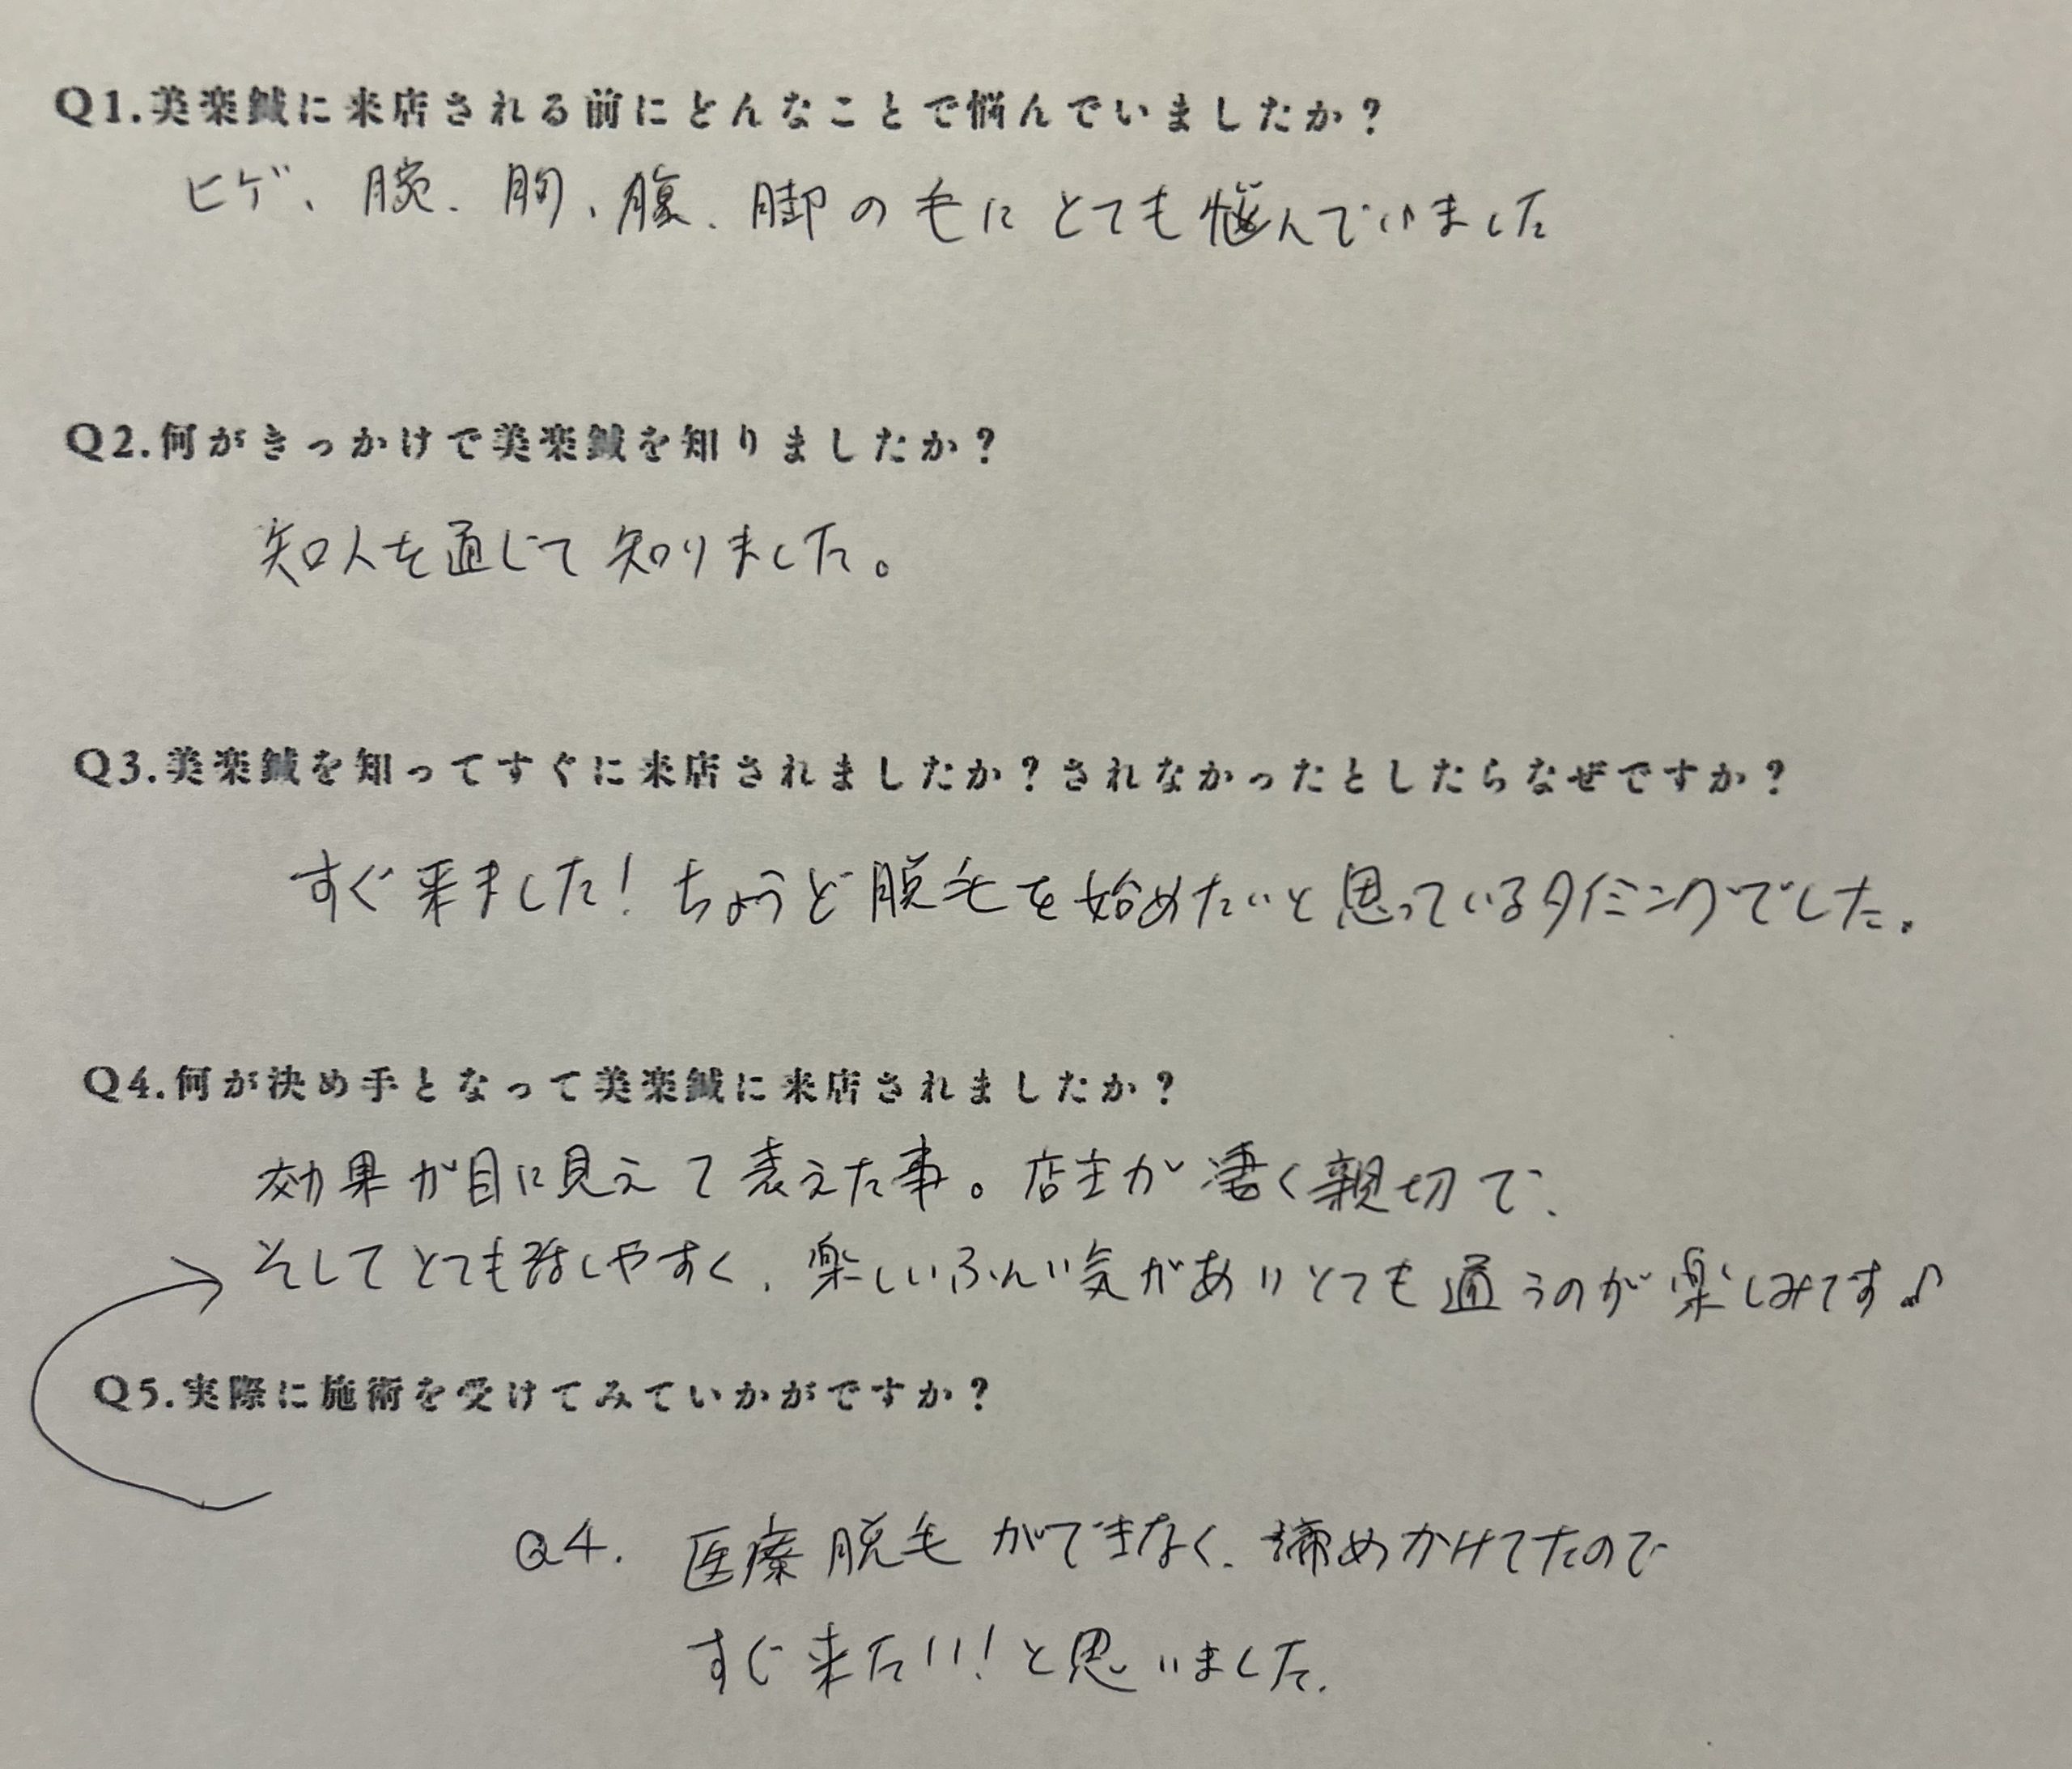 Q1.美楽鍼に来店される前にどんなことで悩んでいましたか？
ヒゲ、腕、胸、腹、脚の毛にとても悩んでいました
Q2.何がきっかけで美楽鍼を知りましたか？
知人を通じて知りました。
Q3.美楽鍼を知ってすぐに来店されましたか？されなかったとしたらなぜですか？
すぐ来ました！ちょうど脱毛を始めたいと思っているタイミングでした。
Q4.何が決め手となって美楽鍼に来店されましたか？
効果が目に見えて表えた事。店主が凄く親切で、
そしてとても話しやすく、楽しいふんい気がありとても通うのが楽しみです♪
Q5.実際に施術を受けてみていかがですか？
Q4. 医療脱毛ができなく、諦めかけてたので
すぐ来たい！と思いました。